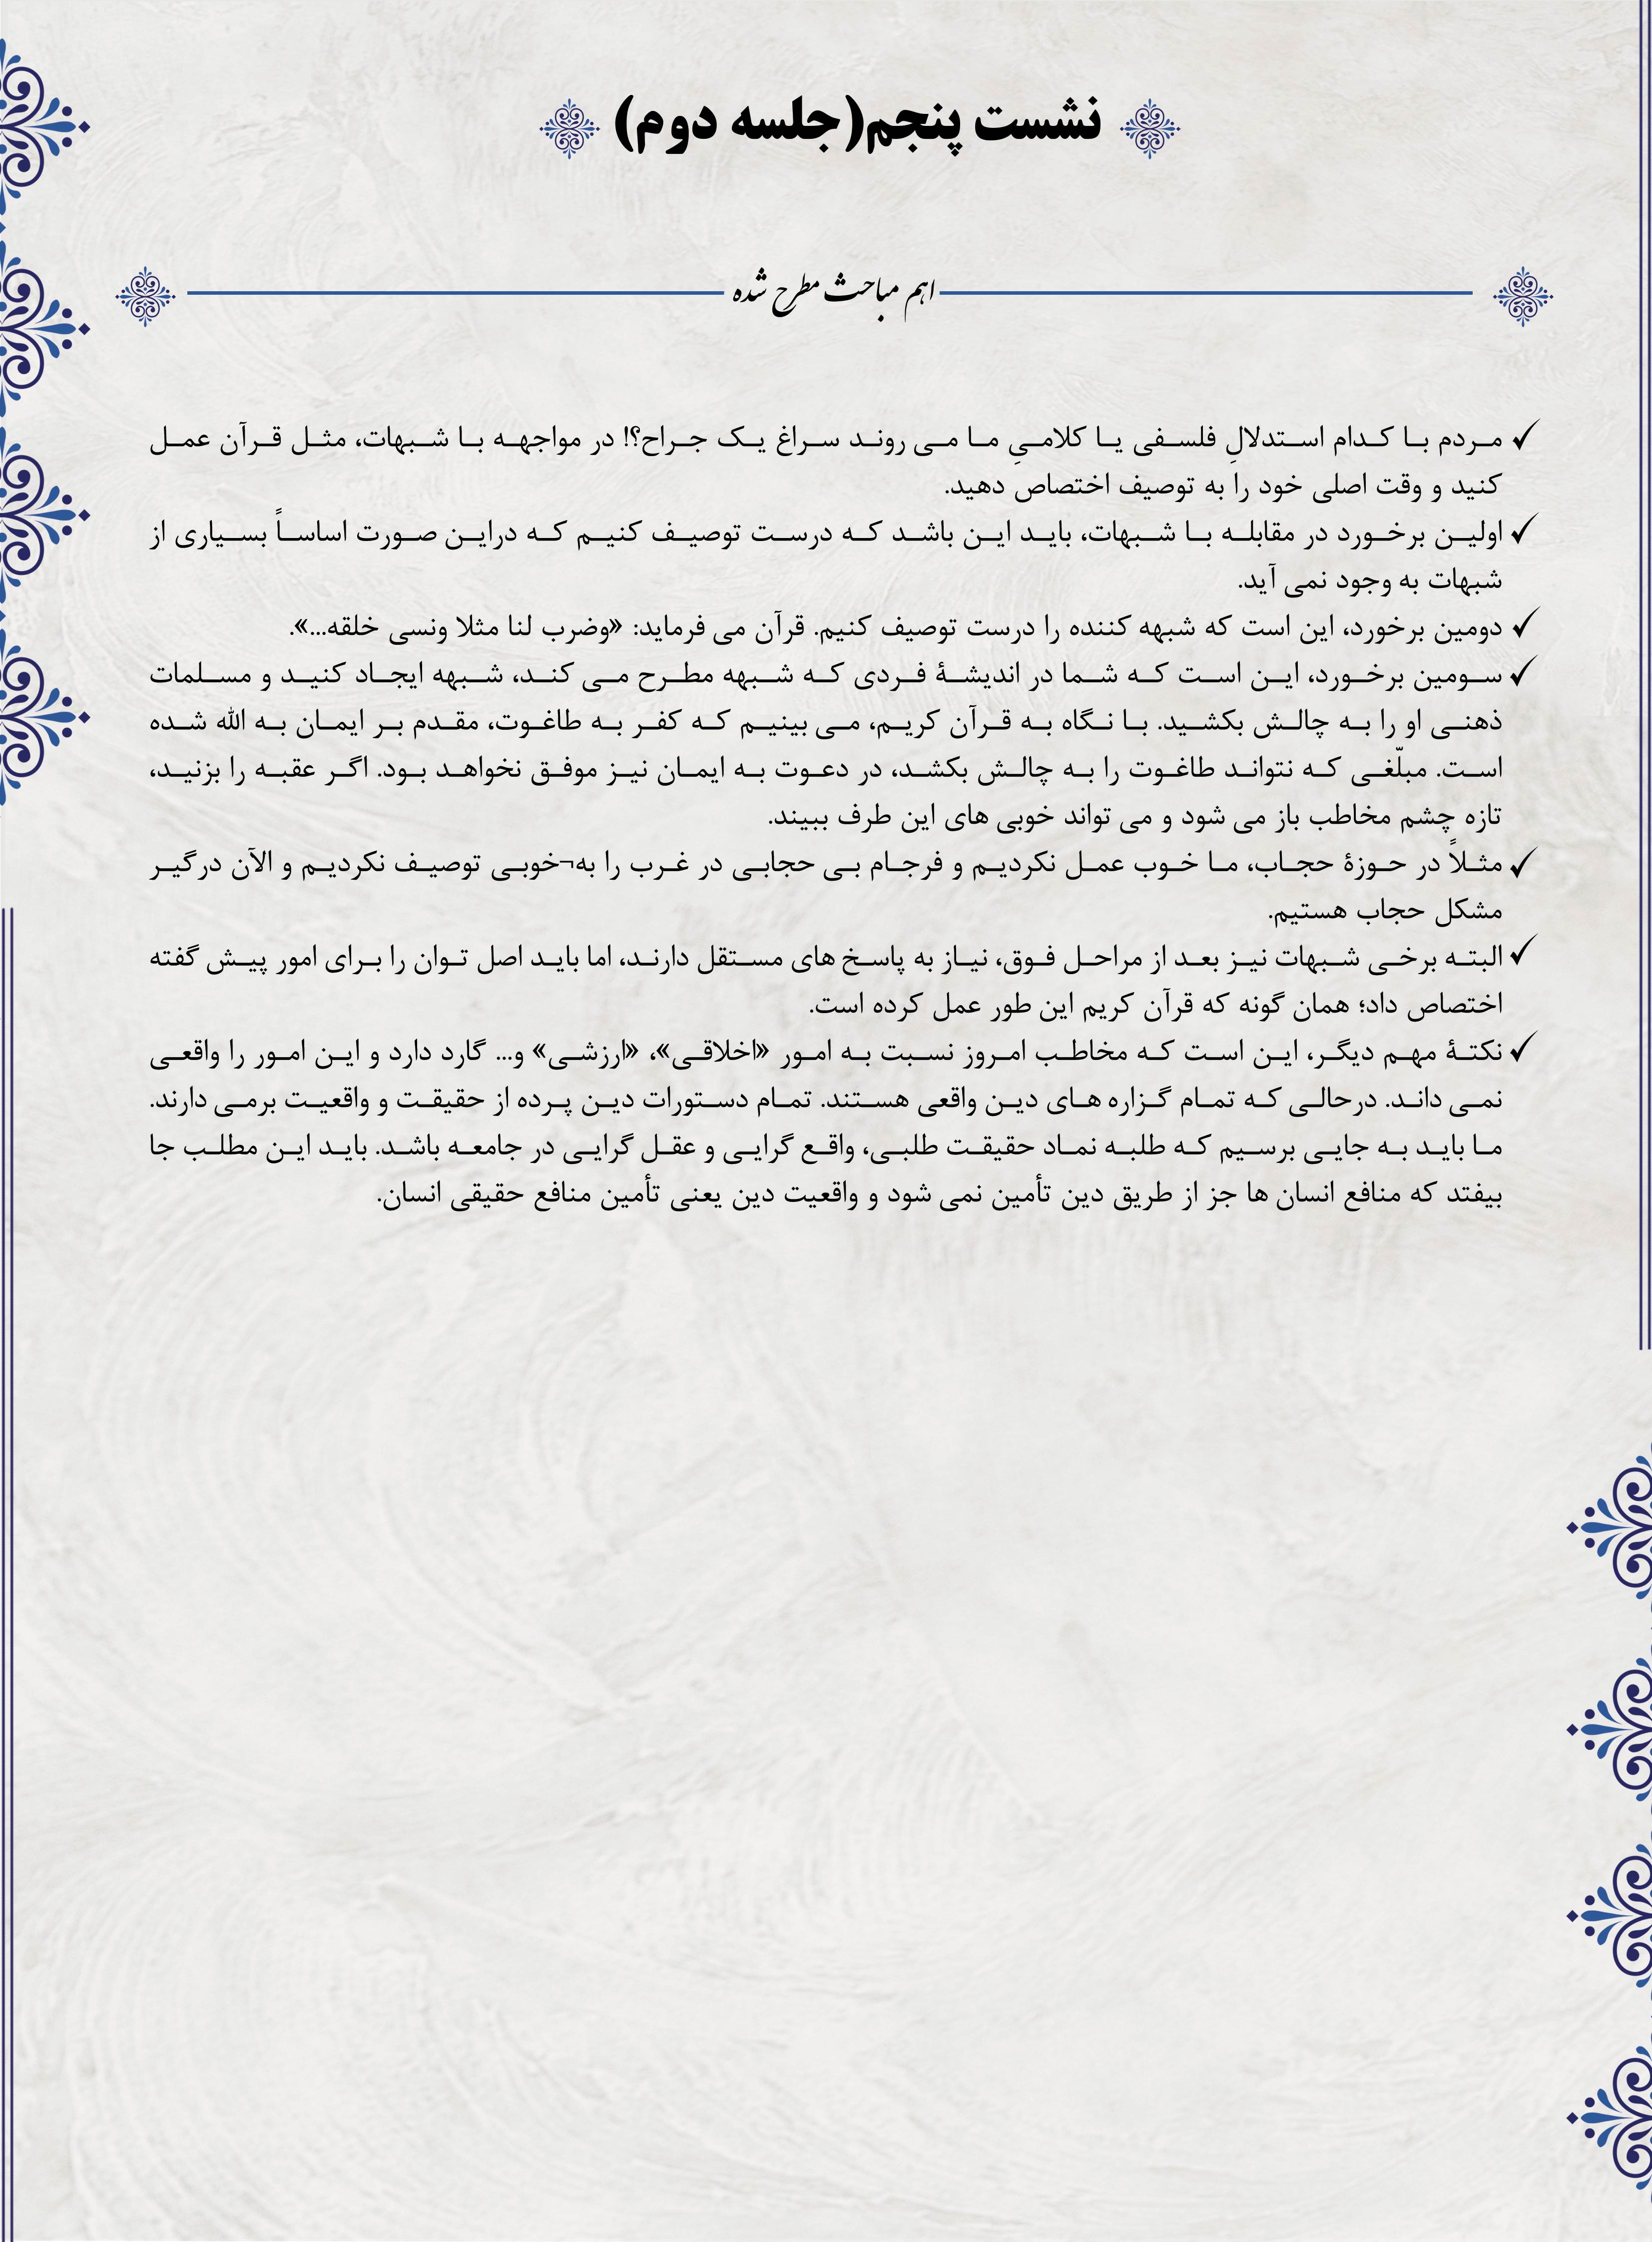 نشست پنجم(جلسه دوم)
اهم مباحث مطرح شده
✓ مردم با کدام استدلالِ فلسفی یا کلامیِ ما می روند سراغ یک جراح؟! در مواجهه با شبهات، مثل قرآن عمل
کنید و وقت اصلی خود را به توصیف اختصاص دهید.
✓ اولین برخورد در مقابله با شبهات، باید این باشد که درست توصیف کنیم که دراین صورت اساساً بسیاری از
شبهات به وجود نمی آید.
✓ دومین برخورد، این است که شبهه کننده را درست توصیف کنیم. قرآن می فرماید: «وضرب لنا مثلا ونسی خلقه...».
✓ سومین برخورد، این است که شما در اندیشهٔ فردی که شبهه مطرح می کند، شبهه ایجاد کنید و مسلمات
ذهنی او را به چالش بکشید. با نگاه به قرآن کریم، می بینیم که کفر به طاغوت، مقدم بر ایمان به الله شده
است. مبلّغی که نتواند طاغوت را به چالش بکشد، در دعوت به ایمان نیز موفق نخواهد بود. اگر عقبه را بزنید،
تازه چشم مخاطب باز می شود و می تواند خوبی های این طرف ببیند.
✓ مثلاً در حوزهٔ حجاب، ما خوب عمل نکردیم و فرجام بی حجابی در غرب را به¬خوبی توصیف نکردیم و الآن درگیر
مشکل حجاب هستیم.
✓ البته برخی شبهات نیز بعد از مراحل فوق، نیاز به پاسخ های مستقل دارند، اما باید اصل توان را برای امور پیش گفته
اختصاص داد؛ همان گونه که قرآن کریم این طور عمل کرده است.
✓ نکتهٔ مهم دیگر، این است که مخاطب امروز نسبت به امور «اخلاقی»، «ارزشی» و... گارد دارد و این امور را واقعی
نمی داند. درحالی که تمام گزاره های دین واقعی هستند. تمام دستورات دین پرده از حقیقت و واقعیت برمی دارند.
ما باید به جایی برسیم که طلبه نماد حقیقت طلبی، واقع گرایی و عقل گرایی در جامعه باشد. باید این مطلب جا
بیفتد که منافع انسان ها جز از طریق دین تأمین نمی شود و واقعیت دین یعنی تأمین منافع حقیقی انسان.